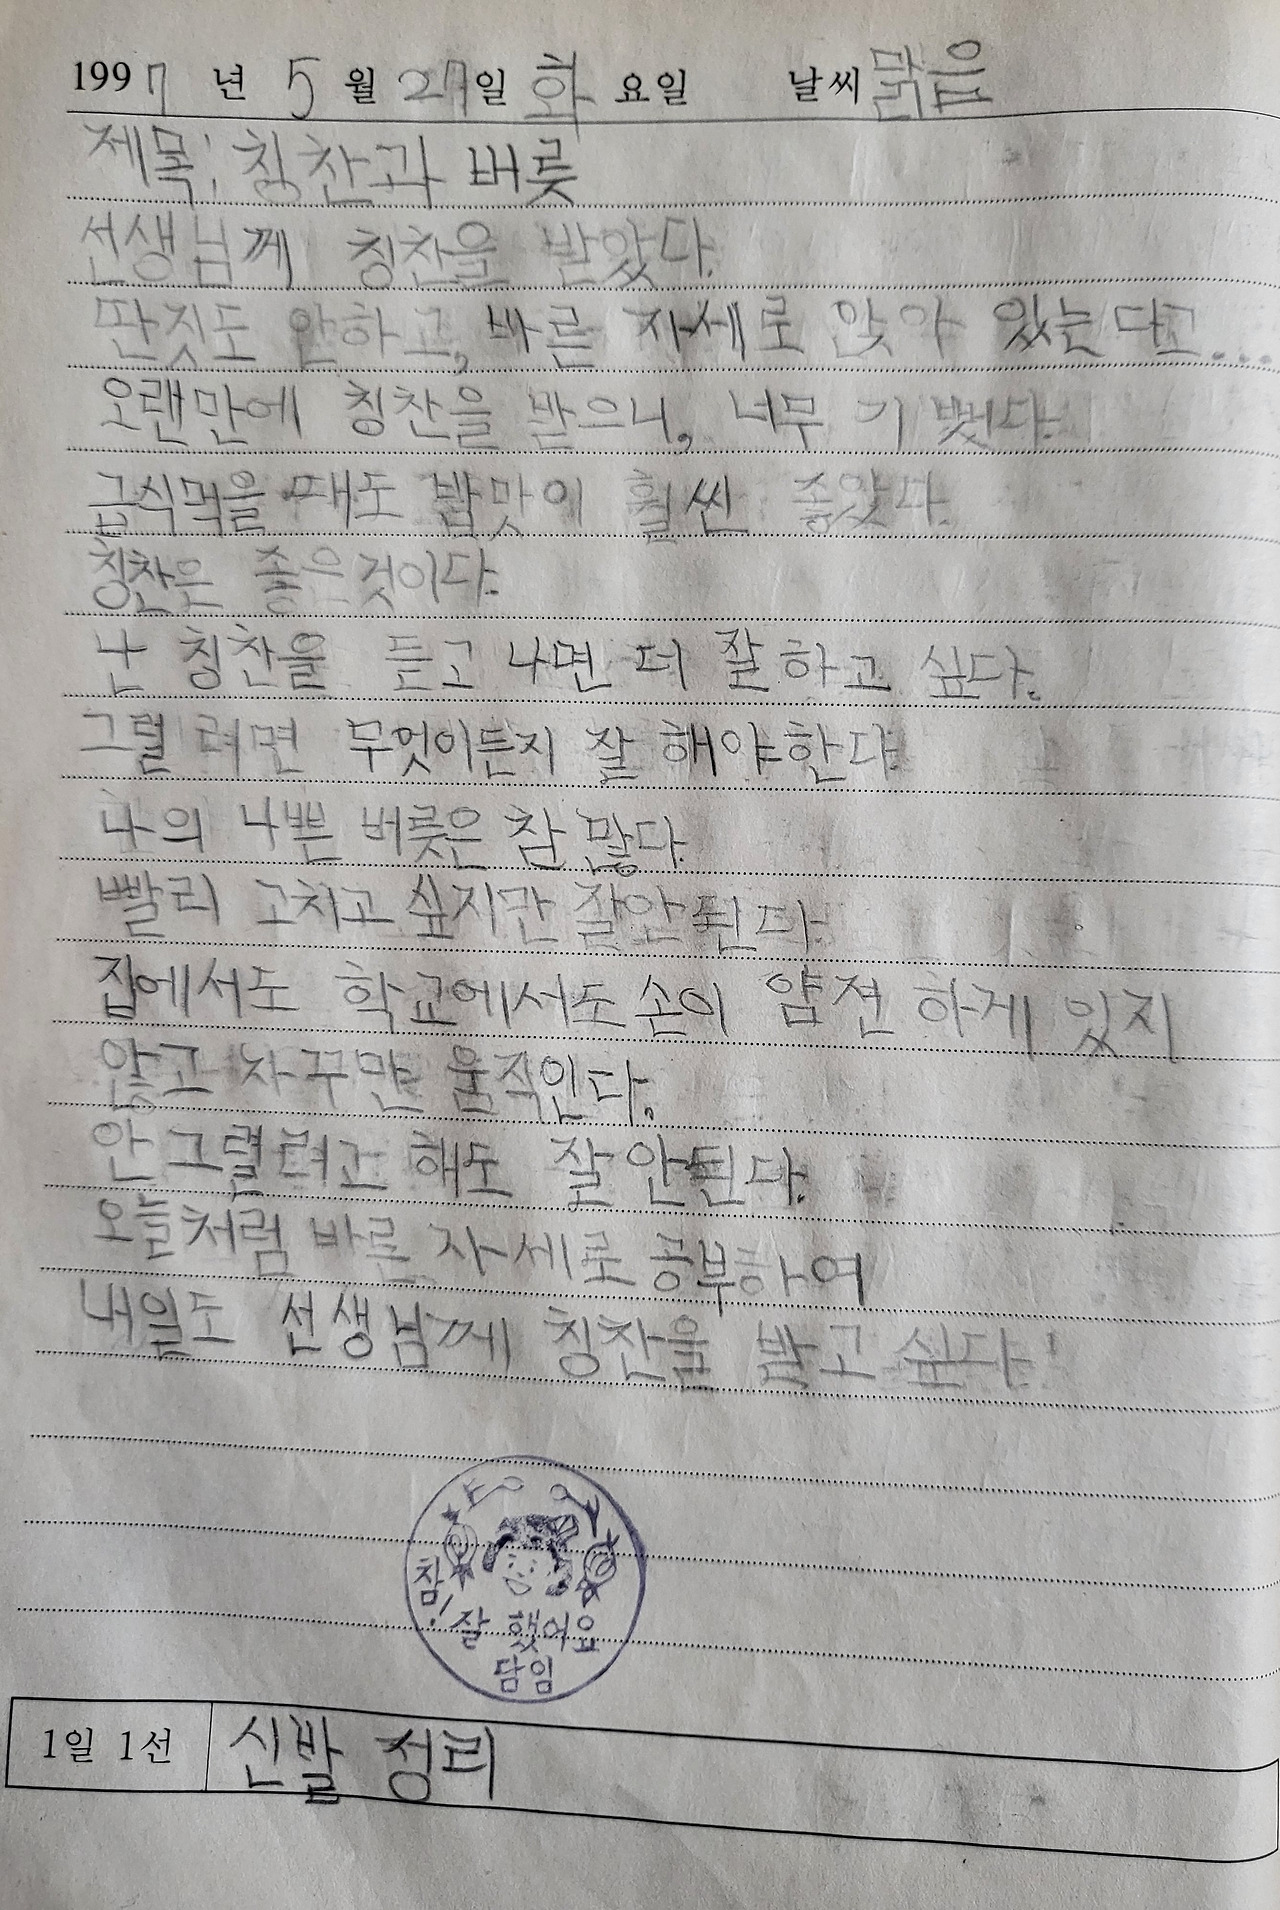 1997년 5월 27일 화요일 날씨 맑음
제목: 칭찬과 버릇
선생님께 칭찬을 받았다.
딴짓도 안하고, 바른 자세로 앉아 있는다고....
오랜만에 칭찬을 받으니, 너무 기뻤다.
급식먹을 때도 밥맛이 훨씬 좋았다.
칭찬은 좋은것이다.
난 칭찬을 듣고 나면 더 잘하고 싶다.
그럴 려면 무엇이든지 잘 해야한다.
나의 나쁜 버릇은 참 많다.
빨리 고치고 싶지만 잘안된다.
집에서도 학교에서도 손이 얌전 하게 있지
않고 자꾸만 움직인다.
안 그럴려고 해도 잘 안된다.
오늘처럼 바른 자세로 공부하여
내일도 선생님께 칭찬을 받고 싶다!
참!
잘 했어요
담임
1일 1선 신발 정리